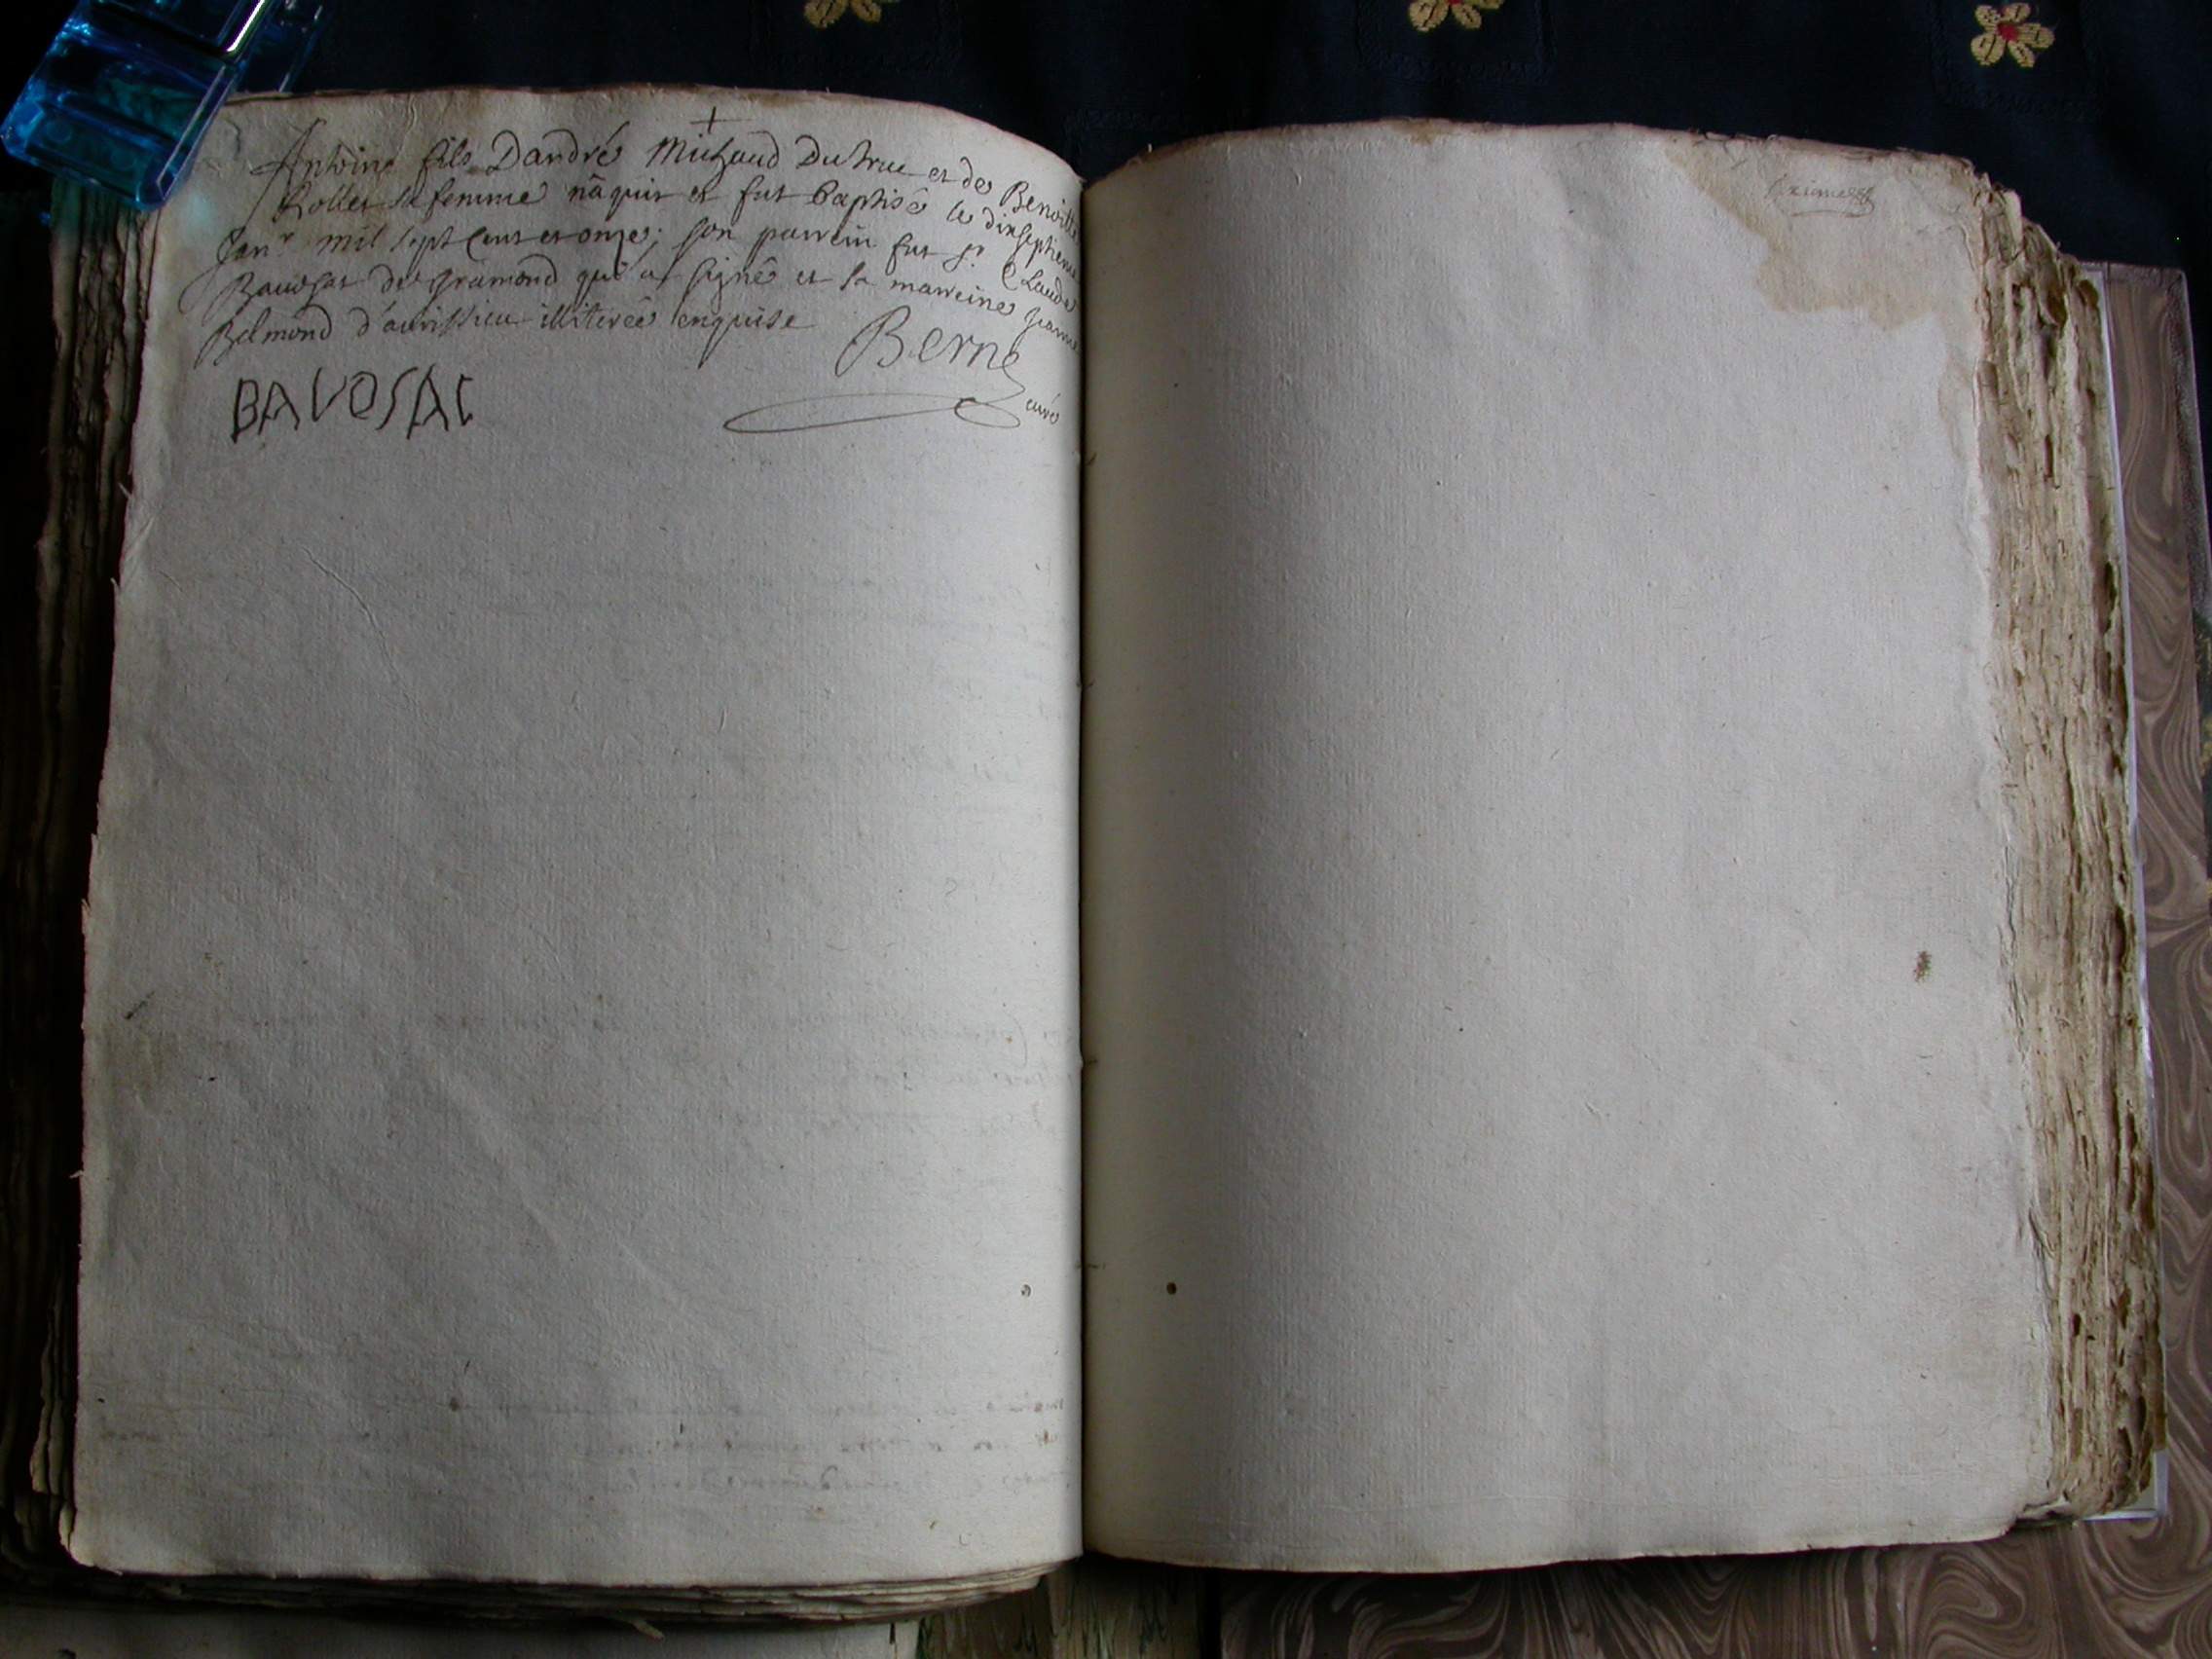 +
Antoine fils Dandré Michaud Dutrue et de Benoitte
Rollet sa femme nâquit et fut baptisé le dixseptieme
Janr mil sept cent et onze; son parrein fut Sr Claude
Bavosat de gramond qui a signé et sa marreine janne
Belmond d'avrissieu illiterée enquise
Berne
curé
BAVOSAT